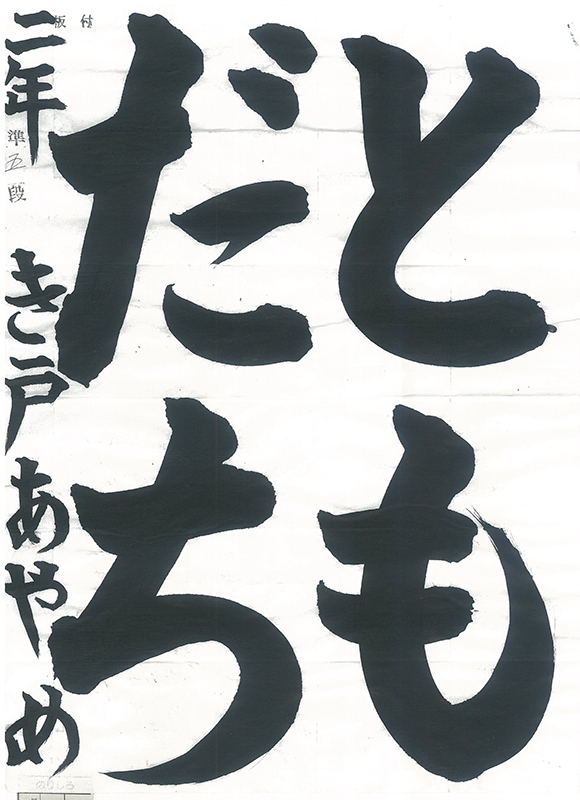 とも
だち
二年 準五段 き戸あやめ
付
板
のりしろ